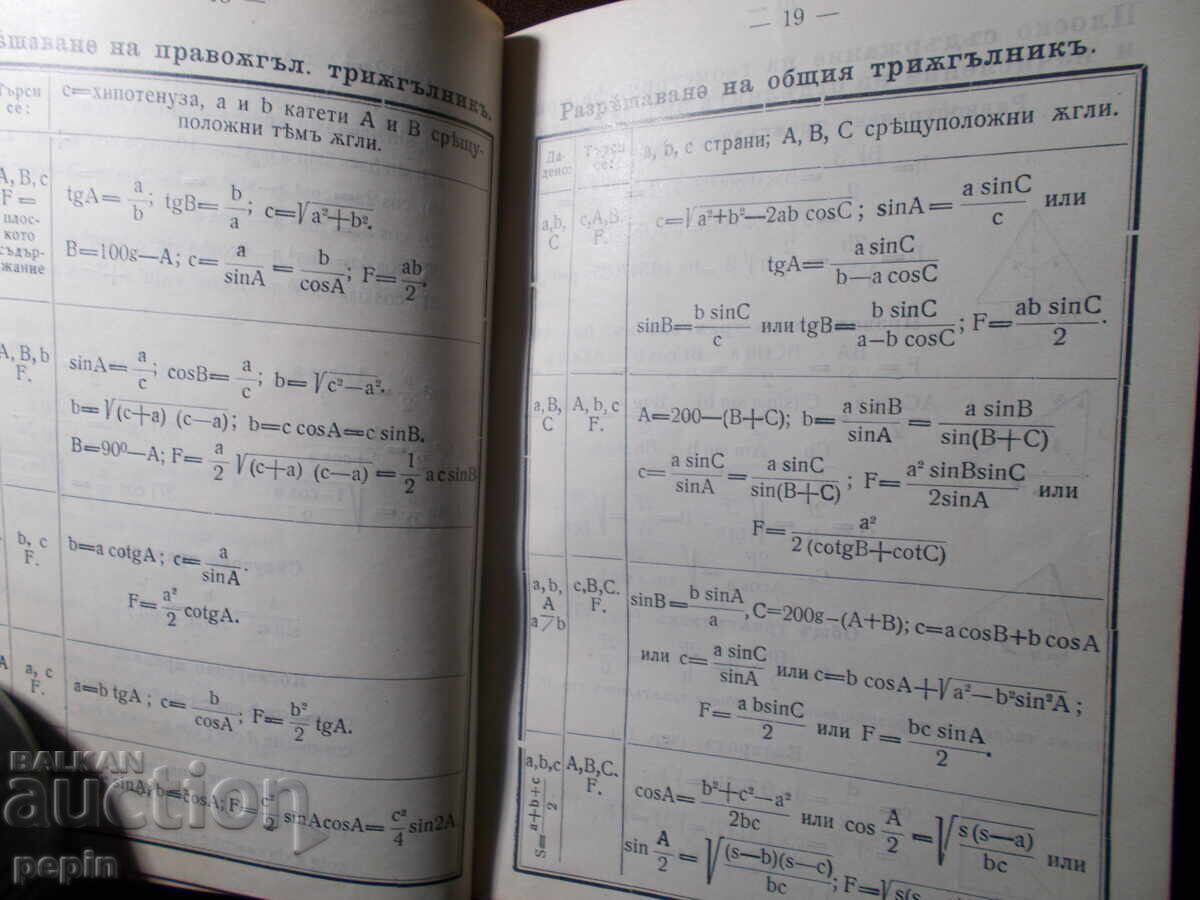 правоѫгъл. трижгълникъ.
на
Търси
се:
c=хипотенуза, a и b катети A и B срѣщу-
положни тѣмъ ѫгли.
A, B, c
F =
плос-
кото
съдър-
жание
tgA= a/b; tgB= b/a; c=√(a²+b²).
B=100g—A; c= a/sinA = b/cosA; F= ab/2.
A, B, b
F.
sinA= a/c; cosB= a/c; b=√(c²—a²).
b=√((c+a) (c—a)); b=c cosA=c sinB.
B=90⁰—A; F= a/2 √((c+a) (c—a)) = 1/2 a c sinB
b, c
F.
b=a cotgA; c= a/sinA.
F= a²/2 cotgA.
a, c
F.
a=b tgA; c= b/cosA; F= b²/2 tgA.
sinA, b=cosA; F= c²/2 sinAcosA= c²/4 sin2A
— 19 —
Разрѣшаване на общия трижгълникъ.
Да-
дено:
Търси
се:
a, b, c страни; A, B, C срѣщуположни ѫгли.
a, b,
C
c, A, B.
F.
c=√(a²+b²—2ab cosC); sinA= a sinC/c или
tgA= a sinC/(b—a cosC)
sinB= b sinC/c или tgB= b sinC/(a-b cosC); F= ab sinC/2.
a, B,
C
A, b, c
F.
A=200—(B+C); b= a sinB/sinA = a sinB/sin(B+C)
c= a sinC/sinA = a sinC/sin(B+C); F= a² sinBsinC/2sinA или
F= a²/2 (cotgB+cotC)
a, b,
A
a>b
c, B, C.
F.
sinB= b sinA/a, C=200g-(A+B); c=a cosB+b cosA
или c= a sinC/sinA или c=b cosA+√(a²—b²sin²A);
F= a bsinC/2 или F= bc sinA/2.
a, b, c
S= a+b+c/2
A, B, C.
F.
cosA= b²+c²—a²/2bc или cos A/2 =√(s (s—a)/bc) или
sin A/2 =√((s—b)(s—c)/bc); F=√(s(s
BALKAN
auction
pepin